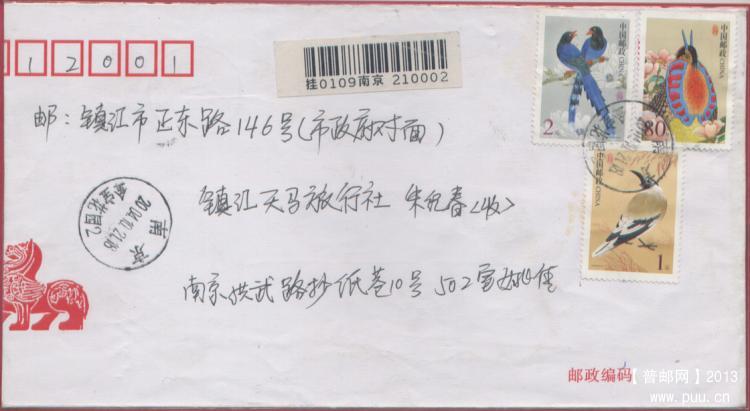 12001
挂0109南京 210002
中国邮政 CHINA
2
中国邮政 CHINA
80
中国邮政 CHINA
1
邮：镇江市正东路146号(市政府对面)
镇江天马旅行社 朱 春(收)
南京
2004.12.21.18
南京洪武路抄纸巷10号502室
邮政编码
【普邮网】2013
www.puu.cn